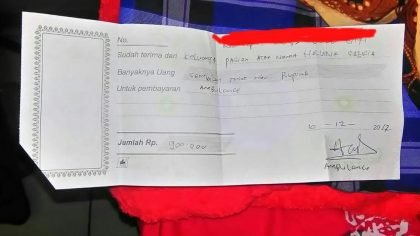 No.
Sudah terima dari KELUARGA PASIEN ATAS NAMA
Banyaknya Uang Sembilan ratus ribu Rupiah
Untuk pembayaran Ambulance
10 - 12 - 2017
Jumlah Rp. 900.000
Ambulance